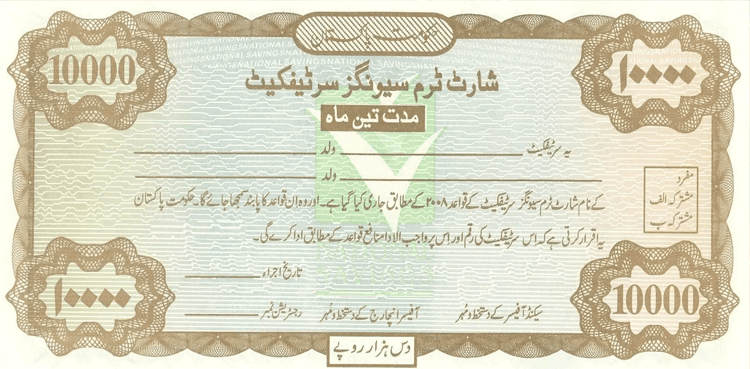 حکومت پاکستان
NATIONAL SAVINGS NATIONAL SAVINGS NATIONAL SAVINGS
10000
۱۰۰۰۰
شارٹ ٹرم سیونگز سرٹیفکیٹ
مدت تین ماہ
یہ سرٹیفکیٹ ولد
ولد
مفرد
مشترکہ الف
مشترکہ ب
کے نام شارٹ ٹرم سیونگز سرٹیفکیٹ کے قواعد ۲۰۰۸ کے مطابق جاری کیا گیا ہے۔ اور وہ ان قواعد کا پابند سمجھا جائے گا۔ حکومت پاکستان
یہ اقرار کرتی ہے کہ اس سرٹیفکیٹ کی رقم اور اس پر واجب الادا منافع قواعد کے مطابق ادا کرے گی۔
تاریخ اجراء
رجسٹریشن نمبر
آفیسر انچارج کے دستخط و مُہر
سیکنڈ آفیسر کے دستخط و مُہر
۱۰۰۰۰
10000
دس ہزار روپے